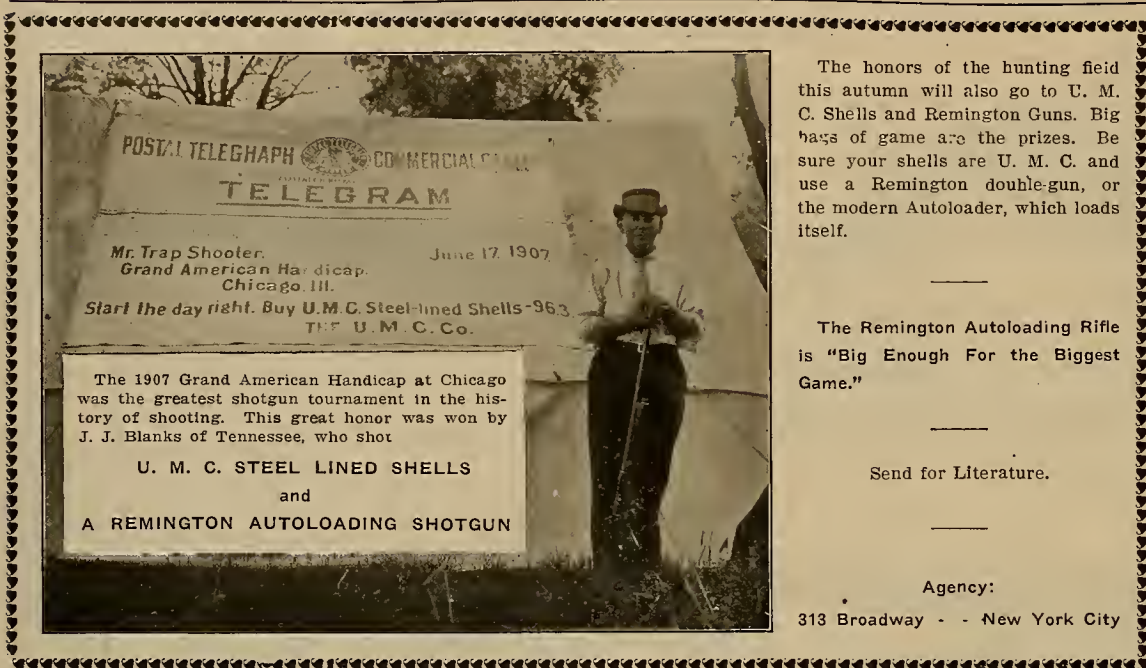 POSTAL TELEGHAPH COMMERCIAL
TELEGRAM
Mr. Trap Shooter. June 17. 1907
Grand American Handicap.
Chicago. Ill.
Start the day right. Buy U.M.C. Steel-lined Shells-963
THE U.M.C.Co.
The 1907 Grand American Handicap at Chicago
was the greatest shotgun tournament in the his-
tory of shooting. This great honor was won by
J. J. Blanks of Tennessee, who shot
U. M. C. STEEL LINED SHELLS
and
A REMINGTON AUTOLOADING SHOTGUN
The honors of the hunting field
this autumn will also go to U. M.
C. Shells and Remington Guns. Big
bags of game are the prizes. Be
sure your shells are U. M. C. and
use a Remington double-gun, or
the modern Autoloader, which loads
itself.
The Remington Autoloading Rifle
is "Big Enough For the Biggest
Game."
Send for Literature.
Agency:
313 Broadway - - New York City